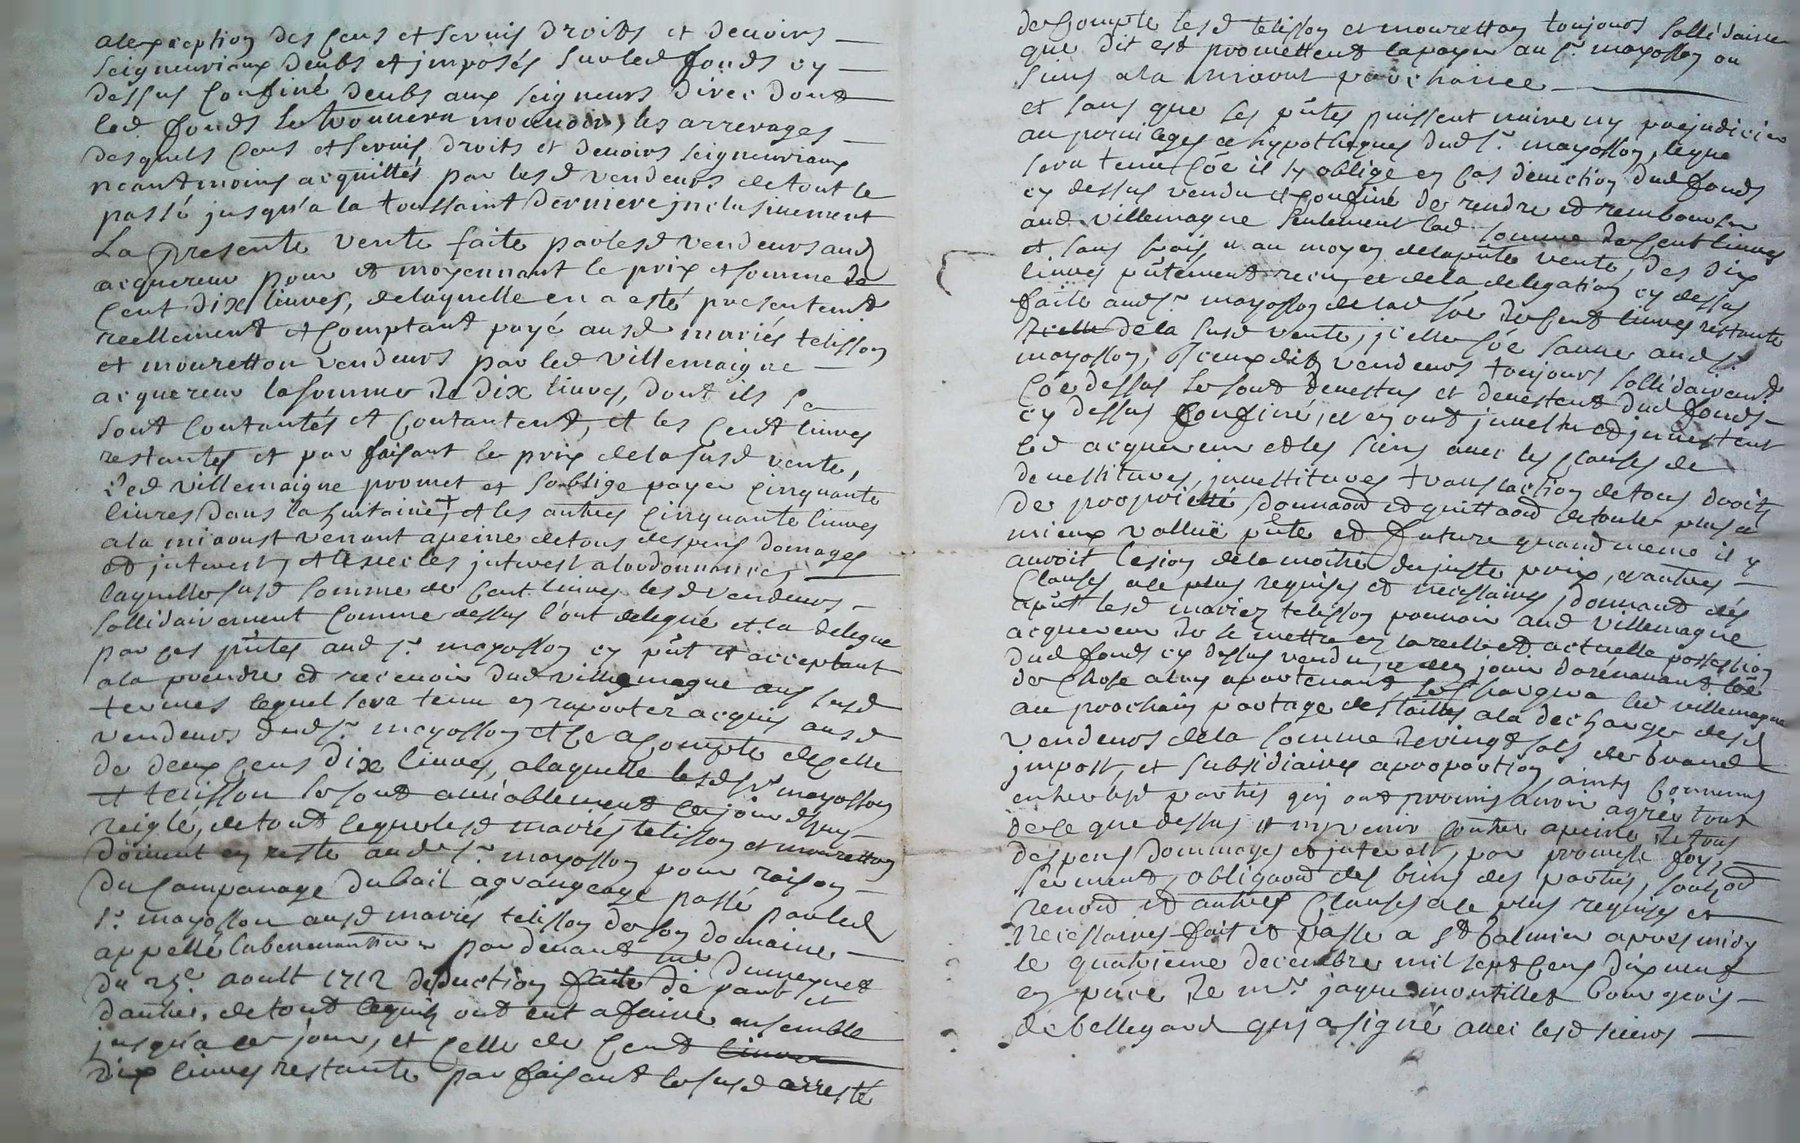 alexception des cens et servis droits et devoirs
seigneuriaux deubs et imposés surled fonds cy
dessus confiné deubs aux seigneurs direc dont
led fonds se trouvera mouvoir, les arrerages
desquels cens et servis droits et devoirs seigneuriaux
neantmoins acquittés par lesd vendeurs detout le
passé jusqu'a la toussaint derniere inclusivement
La presente vente faite par lesd vendeurs aud
acquereur pour et moyennant le prix et somme de
cent dix livres, delaquelle en a esté presentemt
reellement et comptant payé ausd mariés telisson
et mouretton vendeurs par led villemaigne
acquereur lasomme de dix livres, dont ils se
sont contantés et contantent, et les cent livres
restantes et parfaisant le prix delasusd vente,
led villemaigne promet et soblige payer cinquante
livres dans la huitaine + et les autres cinquante livres
ala miaoust venant apeine detous despens domages
et interest, et les interest alordonnance,
laquelle susd somme de cent livres lesd vendeurs
sollidairement comme dessus l'ont delegué et la delegue
par ces pntes aud sr. mayosson cy pnt et acceptant
ala prendre et recevoir dud villemagne aux susd
termes lequel sera tenu en raporter acquis ausd
vendeurs dud sr. mayosson et ce acompte de celle
de deux cens dix livres, alaquelle lesd sr mayosson
et telisson se sont amiablement cejourdhuy
reiglé, detout ceque lesd mariés telisson et mouretton
doivent en reste aud sr. mayosson pour raison
du bail agrangeage passé par led
sr. mayosson ausd mariés telisson de son domaine
appellé par devant me dumeynet
du 25e. aoust 1712 deduction faite de part et
dautre, detout cequils ont eut afaire ensemble
jusqu'a ce jour, et celle de cent livres
dix livres restante parfaisant lesusd arresté
de compte lesd telisson et mouretton toujours sollidaires
que dit est promettent la payer au sr. mayosson ou
siens ala miaout prochaine
et sans que les pntes puissent nuire ny prejudicier
au privileges et hypotheques dud sr. mayosson, leque
sera tenu coe il sy oblige en cas deviction dud fonds
cy dessus vendu et confiné de rendre et rembourser
aud villemagne seulement lad somme de cent livres
et sans frais, au moyen delapnte vente, des dix
livres pntement reçu et dela delegation cy dessus
faite aud sr. mayosson delad soe de cent livres restante
dela susd vente, icelle soe sauve aud sr.
mayosson, iceuxdits vendeurs toujours sollidairemt
coe dessus se sont devestus et devestent dud fonds
cy dessus confiné, et en ont investu et investent
led acquereur et les siens avec les clauses de
devestitures, investitures translaction detous droits
de proprieté, donnaõn et quittaõn detoute plus et
mieux vallue pnte et future quand meme il y
auroit lesion dela moitié dujuste prix, et autres
clauses ale plus requises et necessaires, donnant des
apnt lesd mariez telisson pouvoir aud villemagne
acquereur de se mettre en la reelle et actuelle possession
dud fonds cy dessus vendu, jouir dorenavant coe
de chose aluy apartenant se chargera led villemagne
au prochain partage destailles ala decharges desd
vendeurs dela somme de vingt sols de grand
impost, et subsidiaires aproportion, ainsy convenus
entre lesd parties qui ont promis avoir agréé tout
dece que dessus et ny venir contre apeine de tous
despens dommages et interest, par promesse foy,
serment, obligaõn des biens des parties, soubmõn
renonõn et autres clauses ale plus requises et
necessaires fait et passé a st Galmier apres midy
le quatrieme decembre mil sept cens dix neuf
en pnce de mr. jaque montillet bourgeois
de bellegarde qui a signé avec lesd sieurs